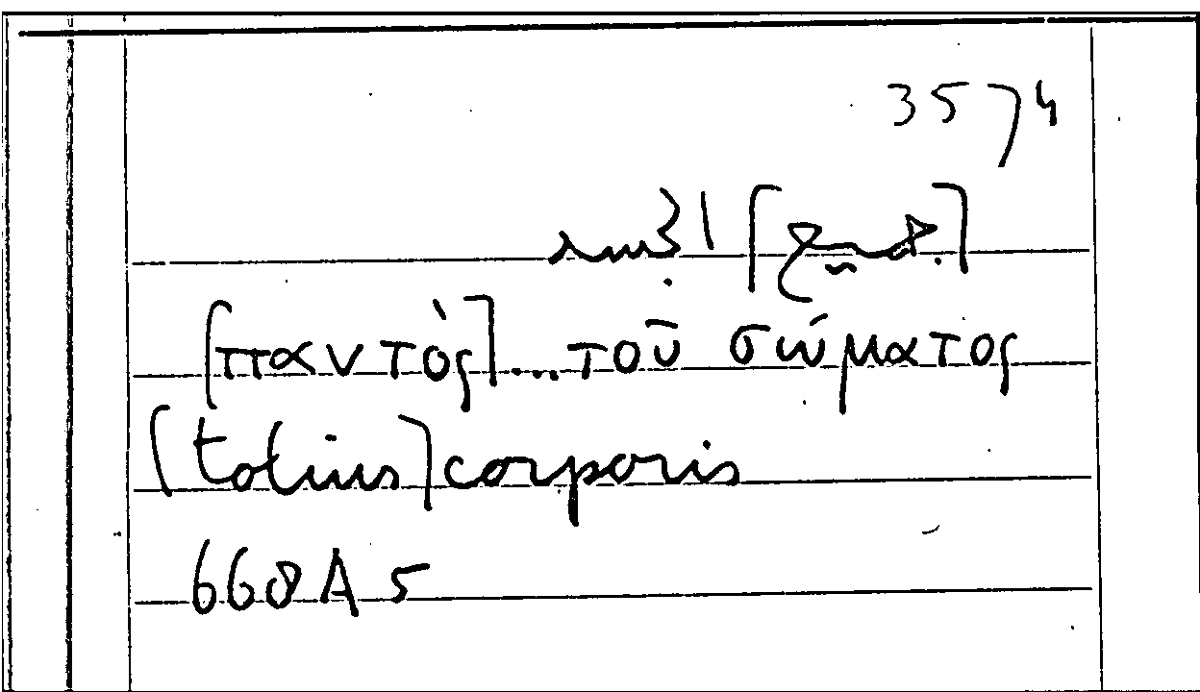 3574
[παντὸς]...τοῦ σώματος
[totius] corporis
668A5